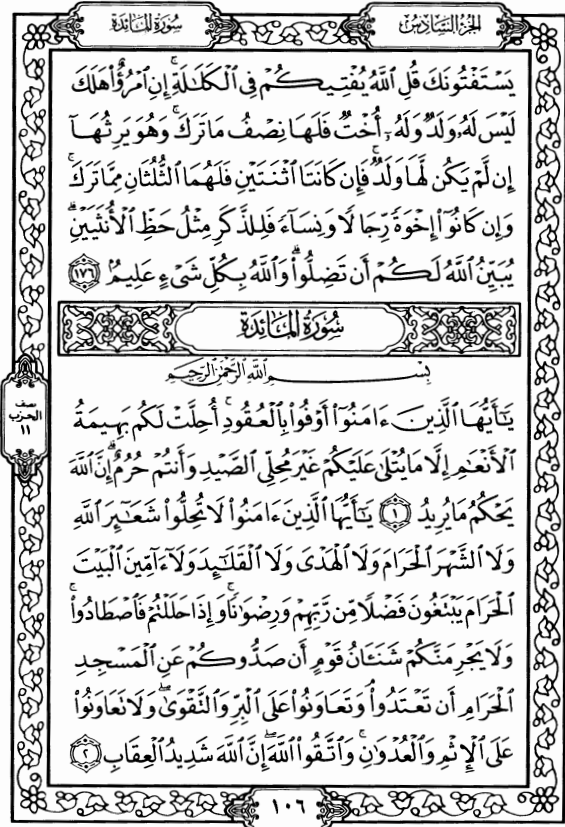 سُورَةُ المَائدة
الجزء السَّادِس
يَسْتَفْتُونَكَ قُلِ ٱللَّهُ يُفْتِيكُمْ فِى ٱلْكَلَٰلَةِ ۚ إِنِ ٱمْرُؤٌا۟ هَلَكَ
لَيْسَ لَهُۥ وَلَدٌ وَلَهُۥٓ أُخْتٌ فَلَهَا نِصْفُ مَا تَرَكَ ۚ وَهُوَ يَرِثُهَآ
إِن لَّمْ يَكُن لَّهَا وَلَدٌ ۚ فَإِن كَانَتَا ٱثْنَتَيْنِ فَلَهُمَا ٱلثُّلُثَانِ مِمَّا تَرَكَ ۚ
وَإِن كَانُوٓا۟ إِخْوَةً رِّجَالًا وَنِسَآءً فَلِلذَّكَرِ مِثْلُ حَظِّ ٱلْأُنثَيَيْنِ ۗ
يُبَيِّنُ ٱللَّهُ لَكُمْ أَن تَضِلُّوا۟ ۗ وَٱللَّهُ بِكُلِّ شَىْءٍ عَلِيمٌۢ ١٧٦
سُورَةُ المَائدة
بِسْمِ ٱللَّهِ ٱلرَّحْمَٰنِ ٱلرَّحِيمِ
يَٰٓأَيُّهَا ٱلَّذِينَ ءَامَنُوٓا۟ أَوْفُوا۟ بِٱلْعُقُودِ ۚ أُحِلَّتْ لَكُم بَهِيمَةُ
ٱلْأَنْعَٰمِ إِلَّا مَا يُتْلَىٰ عَلَيْكُمْ غَيْرَ مُحِلِّى ٱلصَّيْدِ وَأَنتُمْ حُرُمٌ ۗ إِنَّ ٱللَّهَ
يَحْكُمُ مَا يُرِيدُ ١ يَٰٓأَيُّهَا ٱلَّذِينَ ءَامَنُوا۟ لَا تُحِلُّوا۟ شَعَٰٓئِرَ ٱللَّهِ
وَلَا ٱلشَّهْرَ ٱلْحَرَامَ وَلَا ٱلْهَدْىَ وَلَا ٱلْقَلَٰٓئِدَ وَلَآ ءَآمِّينَ ٱلْبَيْتَ
ٱلْحَرَامَ يَبْتَغُونَ فَضْلًا مِّن رَّبِّهِمْ وَرِضْوَٰنًا ۚ وَإِذَا حَلَلْتُمْ فَٱصْطَادُوا۟ ۚ
وَلَا يَجْرِمَنَّكُمْ شَنَـَٔانُ قَوْمٍ أَن صَدُّوكُمْ عَنِ ٱلْمَسْجِدِ
ٱلْحَرَامِ أَن تَعْتَدُوا۟ ۘ وَتَعَاوَنُوا۟ عَلَى ٱلْبِرِّ وَٱلتَّقْوَىٰ ۖ وَلَا تَعَاوَنُوا۟
عَلَى ٱلْإِثْمِ وَٱلْعُدْوَٰنِ ۚ وَٱتَّقُوا۟ ٱللَّهَ ۖ إِنَّ ٱللَّهَ شَدِيدُ ٱلْعِقَابِ ٢
نصف
الحزب
١١
١٠٦